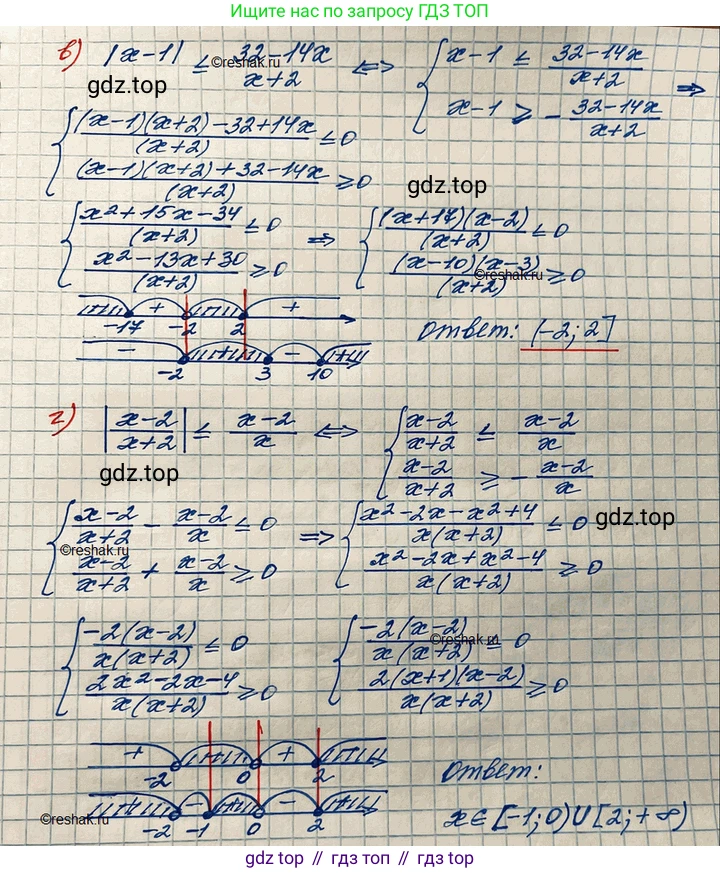 Ищите нас по запросу ГДЗ ТОП
в) |x-1| ≤ (32-14x)/(x+2) ⟺ { x-1 ≤ (32-14x)/(x+2)
x-1 ≥ -(32-14x)/(x+2) ⟹
©reshak.ru
gdz.top
{ ((x-1)(x+2)-32+14x)/(x+2) ≤ 0
((x-1)(x+2)+32-14x)/(x+2) ≥ 0
gdz.top
{ (x²+15x-34)/(x+2) ≤ 0
(x²-13x+30)/(x+2) ≥ 0
⟹ { ((x+17)(x-2))/(x+2) ≤ 0
((x-10)(x-3))/(x+2) ≥ 0
©reshak.ru
+ +
-17 -2 2
- + - +
-2 3 10
ответ: (-2; 2]
г) |(x-2)/(x+2)| ≤ (x-2)/x ⟺ { (x-2)/(x+2) ≤ (x-2)/x
(x-2)/(x+2) ≥ -(x-2)/x
gdz.top
{ (x-2)/(x+2) - (x-2)/x ≤ 0
(x-2)/(x+2) + (x-2)/x ≥ 0
©reshak.ru
⟹ { (x²-2x-x²+4)/(x(x+2)) ≤ 0
(x²-2x+x²-4)/(x(x+2)) ≥ 0
gdz.top
{ (-2(x-2))/(x(x+2)) ≤ 0
(2x²-2x-4)/(x(x+2)) ≥ 0
{ (-2(x-2))/(x(x+2)) ≤ 0
(2(x+1)(x-2))/(x(x+2)) ≥ 0
©reshak.ru
+ +
-2 0 2
- -
-2 -1 0 2
©reshak.ru
ответ:
x∈[-1;0)∪[2;+∞)
gdz.top // гдз топ // gdz.top